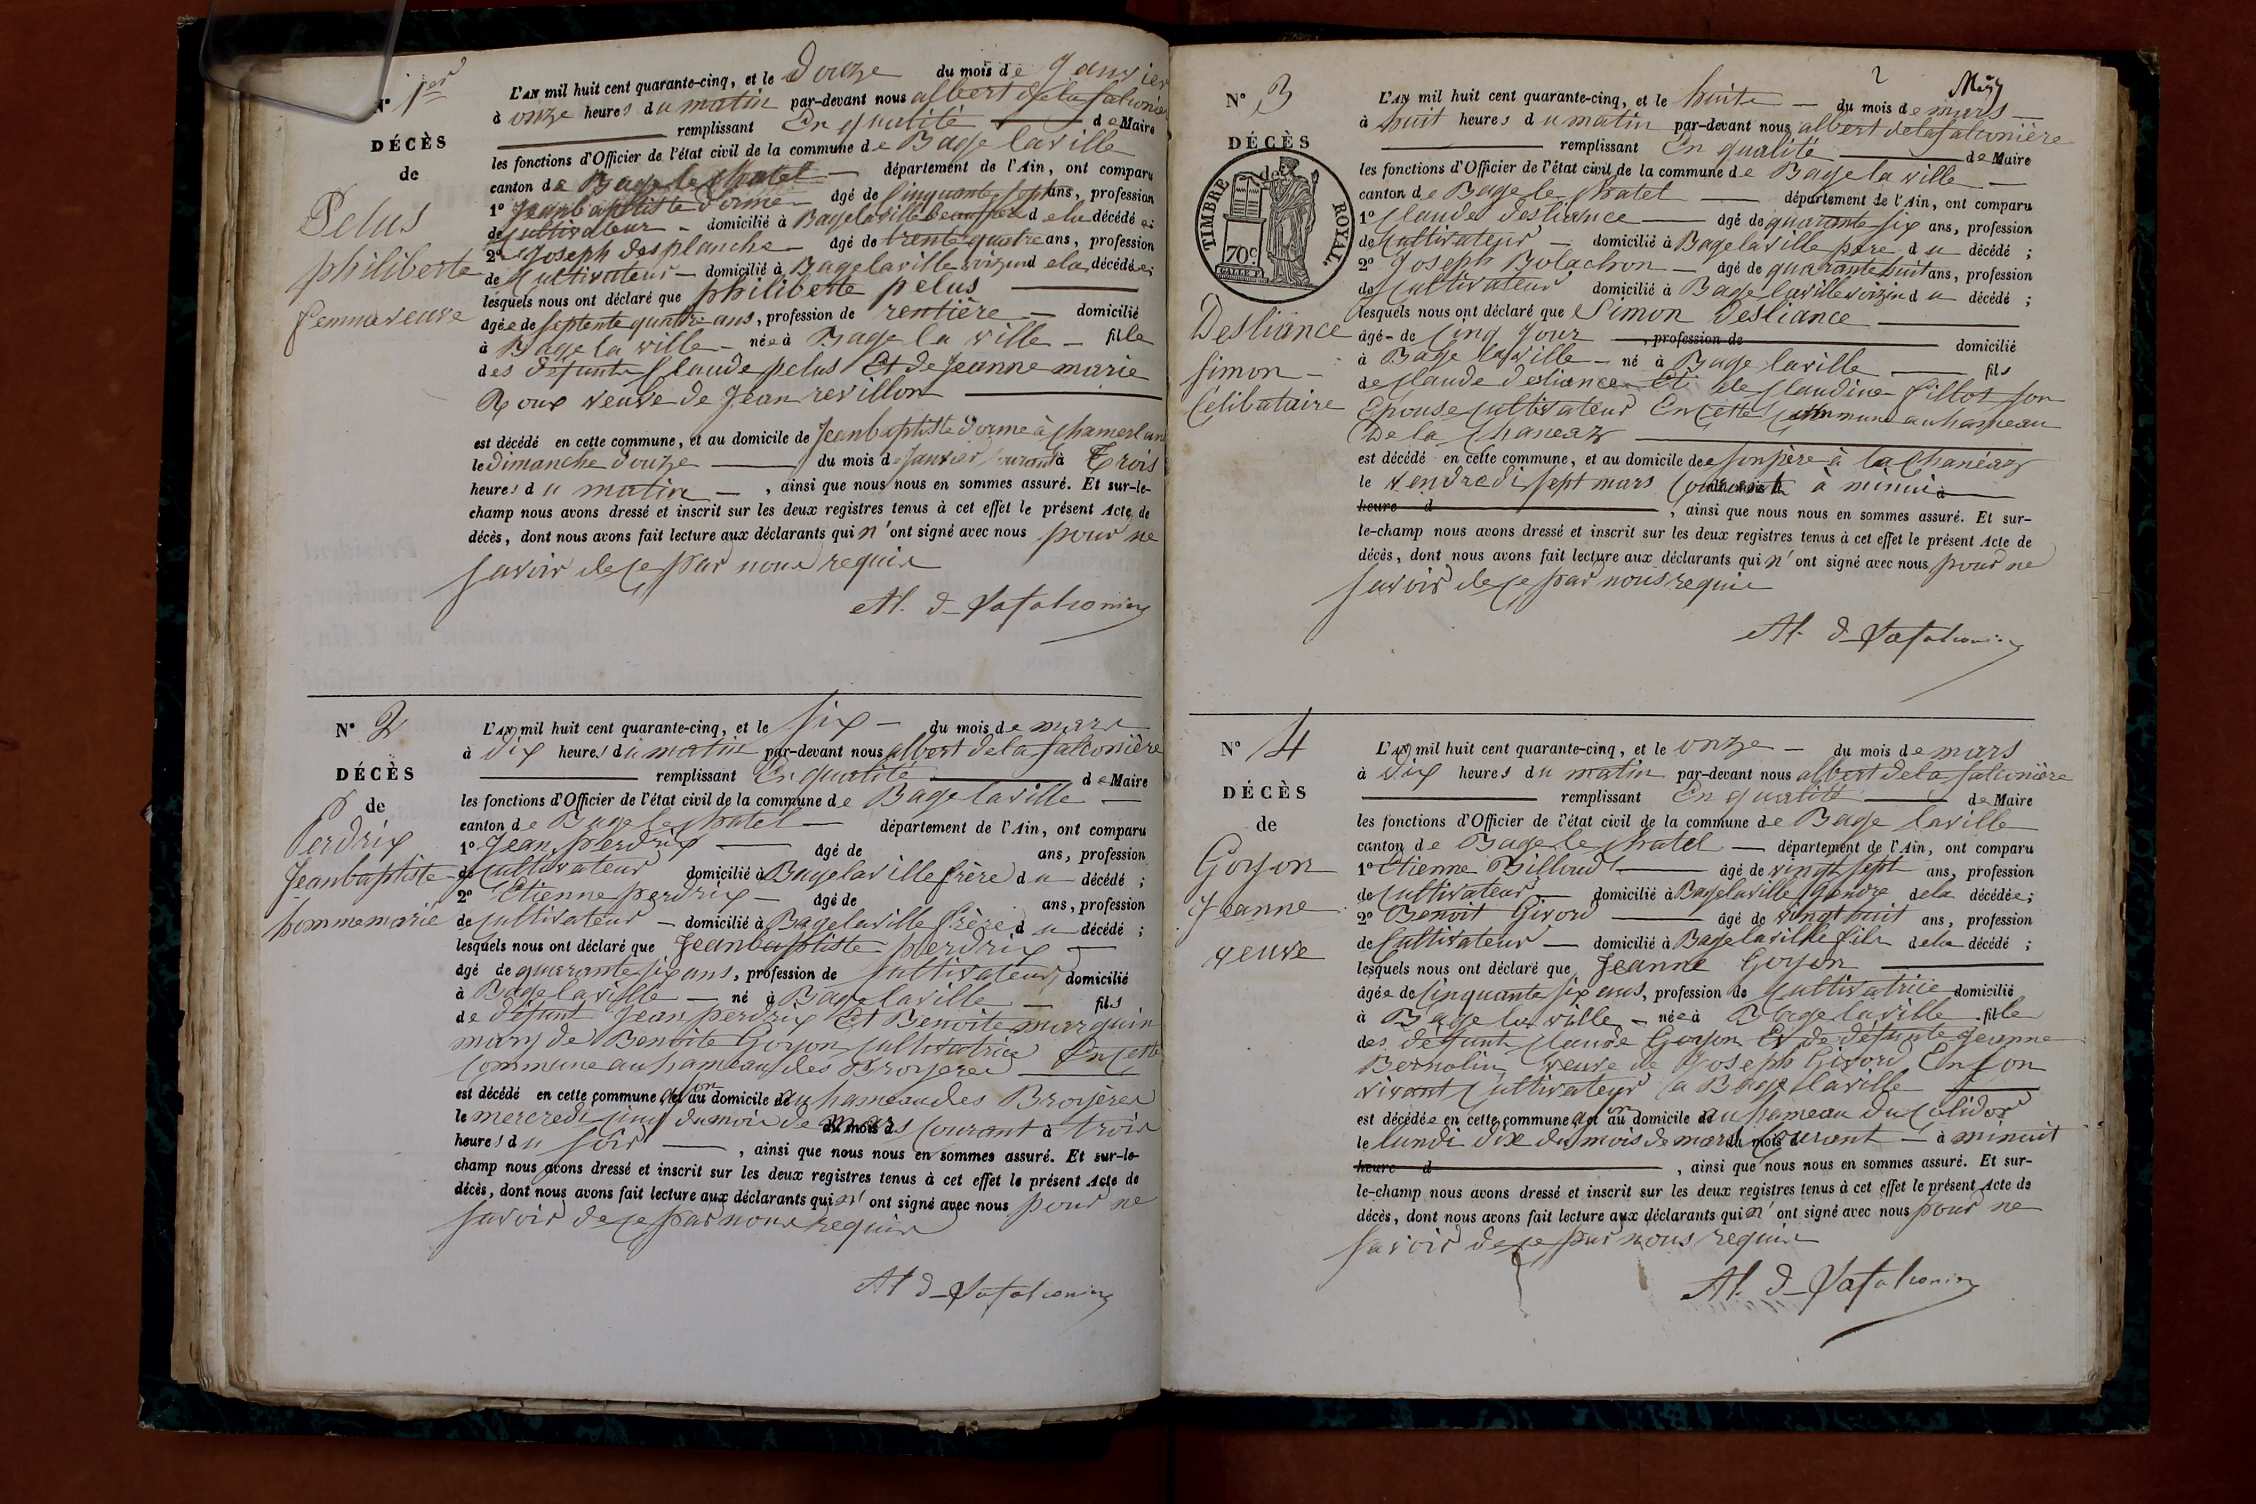 N° 1er
DÉCÈS
de
Pelus
philiberte
femme veuve
L'AN mil huit cent quarante-cinq, et le Douze du mois de Janvier
à onze heures du matin par-devant nous albert de la falconière
remplissant En qualité de Maire
les fonctions d'Officier de l'état civil de la commune de Bage laville
canton de Bage le Chatel département de l'Ain, ont comparu
1° Jeanbaptiste Dorme âgé de Cinquante sept ans, profession
de Cultivateur domicilié à Bagelaville beau frère de la décédée;
2° Joseph desplanche âgé de trente quatre ans, profession
de Cultivateur domicilié à Bagelaville voizin de la décédée;
lesquels nous ont déclaré que philiberte pelus
âgée de septente quatre ans, profession de rentière domicilié
à Bage la ville née à Bage la ville fille
des defunts Claude pelus Et de Jeanne marie
Roux veuve de Jean revillon
est décédé en cette commune, et au domicile de Jeanbaptiste Dorme à Chamerlan
le dimanche douze du mois de Janvier Courant à Trois
heures du matin, ainsi que nous nous en sommes assuré. Et sur-le-
champ nous avons dressé et inscrit sur les deux registres tenus à cet effet le présent Acte de
décès, dont nous avons fait lecture aux déclarants qui n'ont signé avec nous pour ne
savoir de ce par nous requis
Al. d. Lafalconière
N° 2
DÉCÈS
de
Perdrix
Jeanbaptiste
homme marie
L'AN mil huit cent quarante-cinq, et le six du mois de mars
à dix heures du matin par-devant nous albert de la falconière
remplissant En qualité de Maire
les fonctions d'Officier de l'état civil de la commune de Bage laville
canton de Bage le Chatel département de l'Ain, ont comparu
1° Jean perdrix âgé de ans, profession
de Cultivateur domicilié à Bagelaville frère du décédé;
2° Etienne perdrix âgé de ans, profession
de Cultivateur domicilié à Bagelaville frère du décédé;
lesquels nous ont déclaré que Jeanbaptiste perdrix
âgé de quarante six ans, profession de Cultivateur domicilié
à Bagelaville né à Bagelaville fils
de défunt Jean perdrix Et Benoite marguin
mary de Benoite Goyon Cultivatrice En Cette
Commune au hameau des Broyeres
est décédé en cette commune et au son domicile de au hameau des Broyères
le mercredi Cinq du mois de mars du mois d Courant à trois
heures du soir, ainsi que nous nous en sommes assuré. Et sur-le-
champ nous avons dressé et inscrit sur les deux registres tenus à cet effet le présent Acte de
décès, dont nous avons fait lecture aux déclarants qui n'ont signé avec nous pour ne
savoir de ce par nous requis
Al d. Lafalconière
2
N° 3
DÉCÈS
de
TIMBRE ROYAL.
70c.
Desliance
Simon
Celibataire
L'AN mil huit cent quarante-cinq, et le huite du mois de mars
à huit heures du matin par-devant nous albert de la falconière
remplissant En qualité de Maire
les fonctions d'Officier de l'état civil de la commune de Bage la ville
canton de Bage le Chatel département de l'Ain, ont comparu
1° Claude Desliance âgé de quarante six ans, profession
de Cultivateur domicilié à Bagelaville père du décédé;
2° Joseph Bolachon âgé de quarante huit ans, profession
de Cultivateur domicilié à Bage laville voizin du décédé;
lesquels nous ont déclaré que Simon Desliance
âgé de Cinq Jour, profession de domicilié
à Bage laville né à Bage laville fils
de Claude desliance Et de Claudine fillot son
Epouse Cultivateur En Cette Commune au hameau
De la Chaneaz
est décédé en cette commune, et au domicile de son père à la Chanéaz
le vendredi sept mars Courant du mois d à minuit
heure d, ainsi que nous nous en sommes assuré. Et sur-
le-champ nous avons dressé et inscrit sur les deux registres tenus à cet effet le présent Acte de
décès, dont nous avons fait lecture aux déclarants qui n'ont signé avec nous pour ne
savoir de ce par nous requis
Al. d. Lafalconière
N° 4
DÉCÈS
de
Goyon
Jeanne
veuve
L'AN mil huit cent quarante-cinq, et le onze du mois de mars
à dix heures du matin par-devant nous albert de la falconière
remplissant En qualité de Maire
les fonctions d'Officier de l'état civil de la commune de Bage laville
canton de Bage le Chatel département de l'Ain, ont comparu
1° Etienne Billoud âgé de vingt sept ans, profession
de Cultivateur domicilié à Bagelaville Gendre dela décédée;
2° Benoit Givord âgé de vingt huit ans, profession
de Cultivateur domicilié à Bagelaville fils dela décédé;
lesquels nous ont déclaré que Jeanne Goyon
âgée de Cinquante six ans, profession de Cultivatrice domicilié
à Bage la ville née à Bagelaville fille
des defunt Claude Goyon Et de défunte Jeanne
Bernolin veuve de Joseph Givord En son
vivant Cultivateur a Bage laville
est décédée en cette commune et au son domicile de au hameau du Colidor
le lundi dix du mois de mars du mois d Courant à minuit
heure d, ainsi que nous nous en sommes assuré. Et sur-
le-champ nous avons dressé et inscrit sur les deux registres tenus à cet effet le présent Acte de
décès, dont nous avons fait lecture aux déclarants qui n'ont signé avec nous pour ne
savoir de ce par nous requis
Al. d. Lafalconière